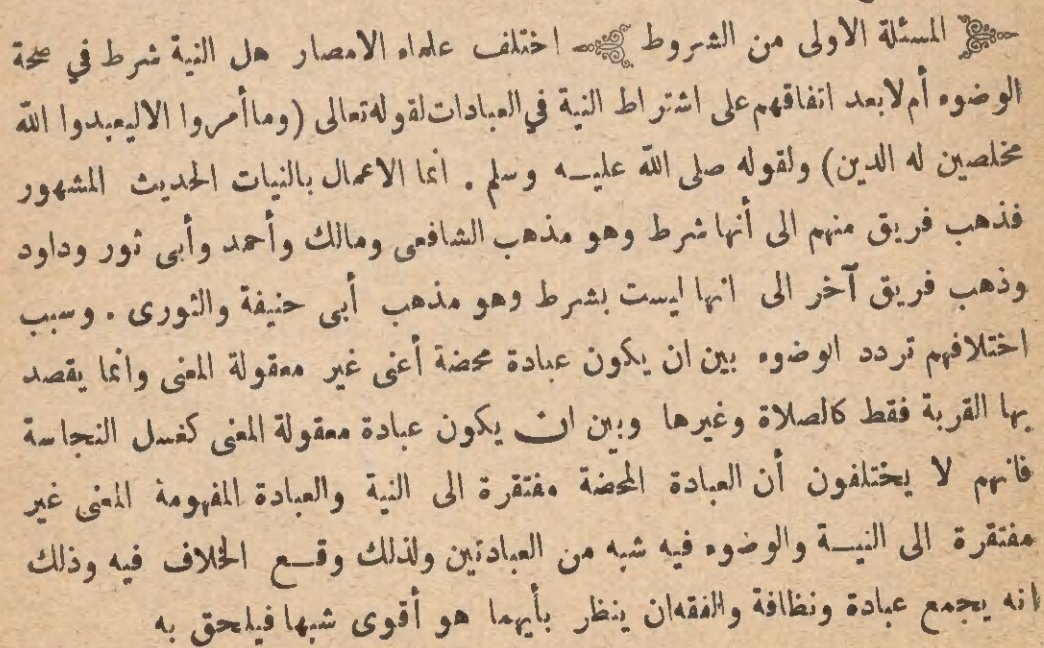 المسئلة الاولى من الشروط اختلف علماء الامصار هل النية شرط في صحة
الوضوء أم لا بعد اتفاقهم على اشتراط النية في العبادات لقوله تعالى (وما أمروا الا ليعبدوا الله
مخلصين له الدين) ولقوله صلى الله عليه وسلم . انما الاعمال بالنيات الحديث المشهور
فذهب فريق منهم الى أنها شرط وهو مذهب الشافعى ومالك وأحمد وأبى ثور وداود
وذهب فريق آخر الى انها ليست بشرط وهو مذهب أبى حنيفة والثورى . وسبب
اختلافهم تردد الوضوء بين ان يكون عبادة محضة أعنى غير معقولة المعنى وانما يقصد
بها القربة فقط كالصلاة وغيرها وبين ان يكون عبادة معقولة المعنى كغسل النجاسة
فانهم لا يختلفون أن العبادة المحضة مفتقرة الى النية والعبادة المفهومة المعنى غير
مفتقرة الى النية والوضوء فيه شبه من العبادتين ولذلك وقع الخلاف فيه وذلك
انه يجمع عبادة ونظافة والفقه ان ينظر بأيهما هو أقوى شبها فيلحق به